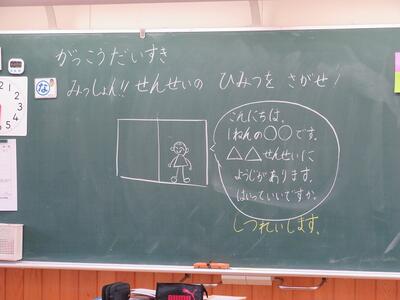 がっこうだいすき
な
みっしょん!! せんせいの ひみつを さがせ!
こんにちは。
1ねんの○○です。
△△せんせいに
ようじがあります。
はいっていいですか。
しつれいします。
12
1
2
3
4
5
PUMA